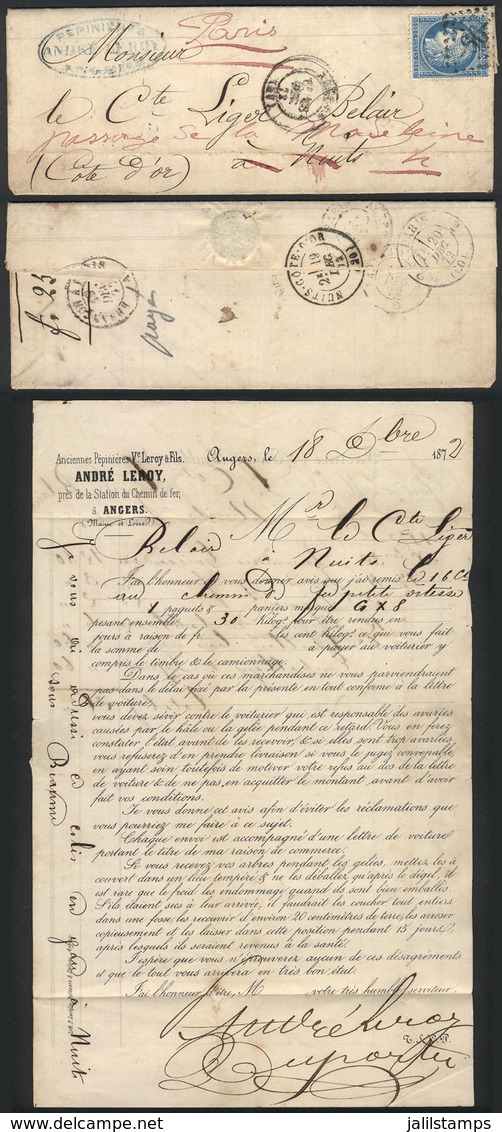 PEPINIERES
ANDRÉ LEROY
Paris
Monsieur
le Cte Liger Belair
passage de la Madeleine
à Nuits 4
(Cote d'or)
NUITS-COTE-D'OR
19
DEC
PARIS
20
DEC
f. 25
payer
Anciennes Pépinières Vr. Leroy & Fils.
ANDRÉ LEROY,
près de la Station du Chemin de fer,
à ANGERS.
(Maine et Loire)
Angers, le 18 Xbre 1872
Mr le Cte Liger
Belair à Nuits
J'ai l'honneur de vous donner avis que j'ai remis le 16 Ct
au chemin de fer petite vitesse
1 paquets & paniers marqué G X 8
pesant ensemble 30 kilogs. pour être rendus en
jours à raison de fr. les cent kilogs. ce qui vous fait
la somme de à payer au voiturier y
compris le timbre & le camionnage.
Dans le cas où ces marchandises ne vous parviendraient
pas dans le délai fixé par la présente en tout conforme à la lettre
de voiture,
vous devez sévir contre le voiturier qui est responsable des avaries
causées par le hâle ou la gelée pendant ce retard. Vous en ferez
constater l'état avant de les recevoir, & si elles sont trop avariées,
vous refuserez d'en prendre livraison si vous le jugez convenable,
en ayant soin toutefois de motiver votre refus au dos de la lettre
de voiture & de ne pas en acquitter le montant avant d'avoir
fait vos conditions.
Je vous donne cet avis afin d'éviter les réclamations que
vous pourriez me faire à ce sujet.
Chaque envoi est accompagné d'une lettre de voiture
portant le titre de ma raison de commerce.
Si vous recevez vos arbres pendant les gelées, mettez-les à
couvert dans un lieu tempéré & ne les déballez qu'après le dégel, il
est rare que le froid les endommage quand ils sont bien emballés.
S'ils étaient secs à leur arrivée, il faudrait les coucher tout entiers
dans une fosse, les recouvrir d'environ 20 centimètres de terre, les arroser
copieusement et les laisser dans cette position pendant 15 jours,
après lesquels ils seraient revenus à la santé.
J'espère que vous n'éprouverez aucun de ces désagréments
et que le tout vous arrivera en très bon état.
J'ai l'honneur d'être, M votre très humble serviteur.
André Leroy
T.S.V.P.
Je vous ai adressé ce colis en gare Nuit
sous Beaune
www.delcampe.net
jalilstamps